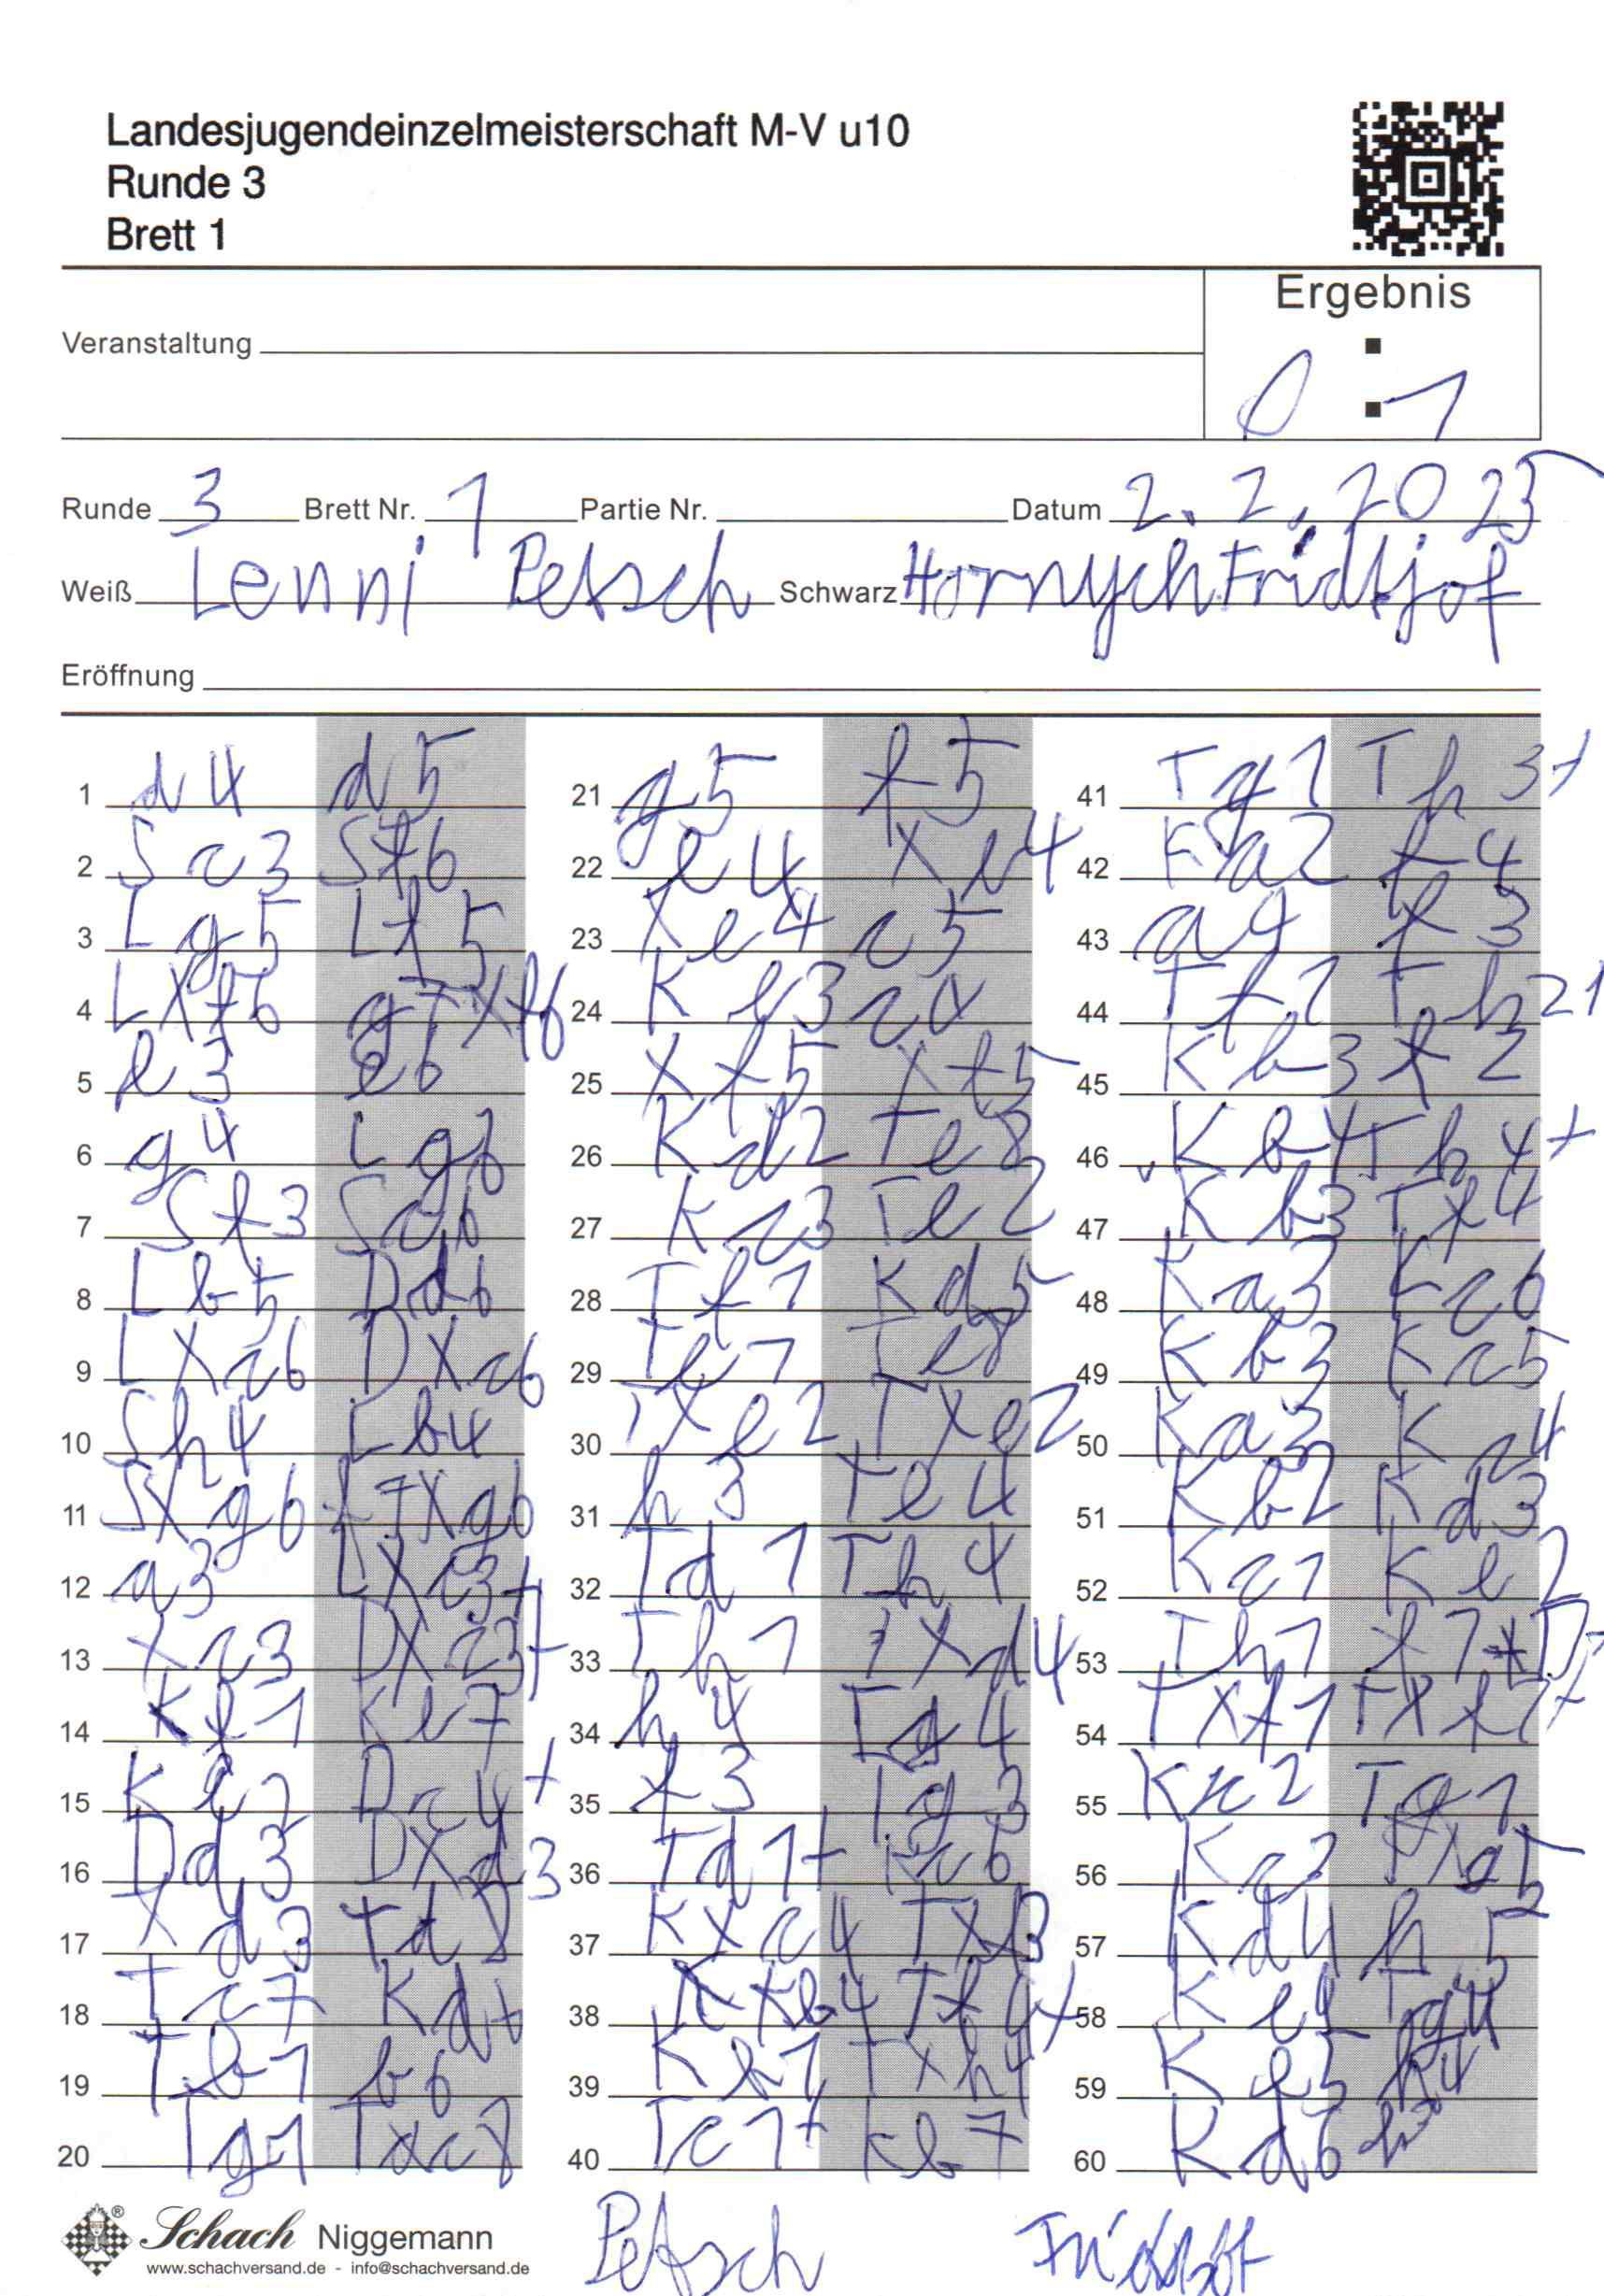 Landesjugendeinzelmeisterschaft M-V u10
Runde 3
Brett 1
Ergebnis
Veranstaltung
0 : 1
Runde 3 Brett Nr. 1 Partie Nr. Datum 2. 2. 2023
Weiß Lenni Petsch Schwarz Hornych Fridtjof
Eröffnung
1 d4 d5
2 Sc3 Sf6
3 Lg5 Lf5
4 LXf6 g7Xf6
5 e3 e6
6 g4 Lg6
7 Sf3 Sc6
8 Lb5 Dd6
9 LXc6 DXc6
10 Sh4 Lb4
11 SXg6 f7Xg6
12 a3 LXc3+
13 Xc3 DXc3+
14 Kf1 Ke7
15 Ke2 Dc4+
16 Dd3 DXd3
17 Xd3 Td8
18 Tc7 Kd6
19 Tb1 b6
20 Tg1 Tdc8
21 g5 f5
22 e4 Xe4
23 Xe4 c5
24 Ke3 c4
25 Xf5 Xf5
26 Kd2 Te8
27 Kc3 Te2
28 Tf1 Kd5
29 Te1 Te8
30 TXe2 TXe2
31 h3 Te4
32 Td1 Th4
33 Th1 TXd4
34 h4 Tg4
35 f3 Tg3
36 Td1+ Kc6
37 KXc4 TXf3
38 Tf4+
39 TXh4
40 Tc1+ Kb7
41 Tg1 Th3+
42 Ka2 f4
43 a4 f3
44 Tf1 Th2+
45 Kb3 f2
46 Kb4 Th4+
47 Kb3 Tf4
48 Ka3 Kc6
49 Kb3 Kc5
50 Ka3 Kc4
51 Kb2 Kd3
52 Kc1 Ke2
53 Th1 f1+D+
54 TXf1 TXf1+
55 Kc2 Tg1
56 Kc3 TXg5
57 Kd4 h5
58 Ke4 Tg4
59 Ke5 h4
60 Kd6 h3
Schach Niggemann
www.schachversand.de - info@schachversand.de
Petsch Fridtjof